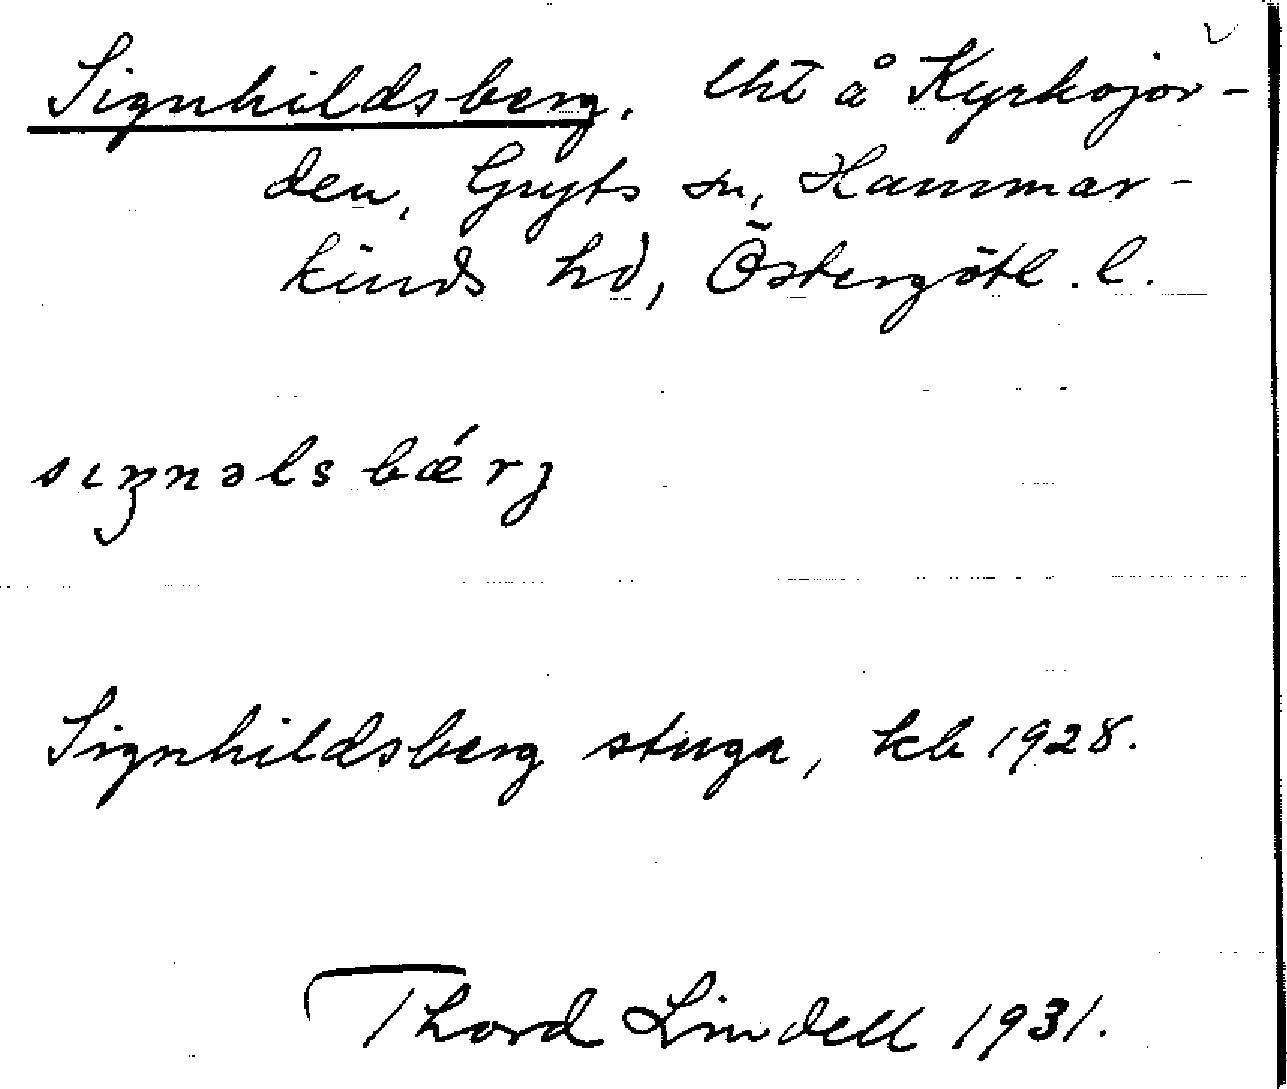 Signhildsberg. lht å Kyrkojor-
den, Gryts sn, Hammar-
kinds hd, Östergötl. l.
sıŋnəlsbǽrj
Signhildsberg stuga, kb 1928.
Thord Lindell 1931.